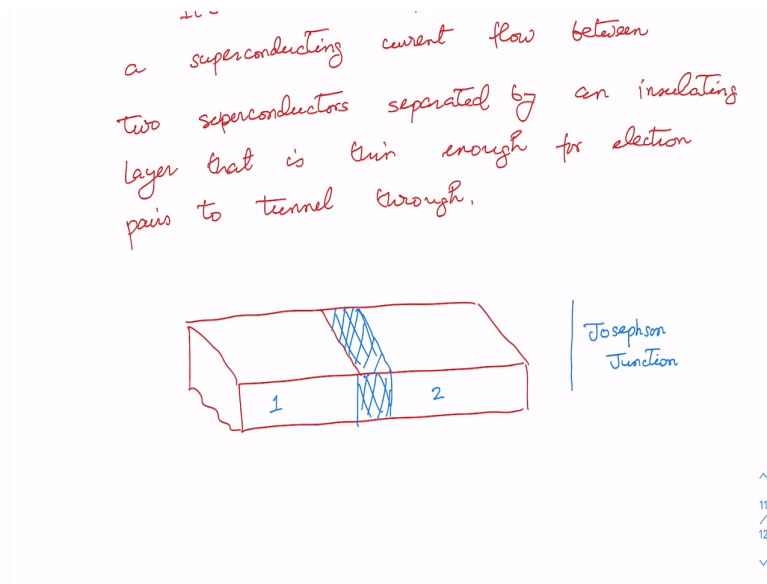 a superconducting current flow between
two superconductors separated by an insulating
layer that is thin enough for election
pairs to tunnel through.
Josephson
Junction
1
2
11
/
12